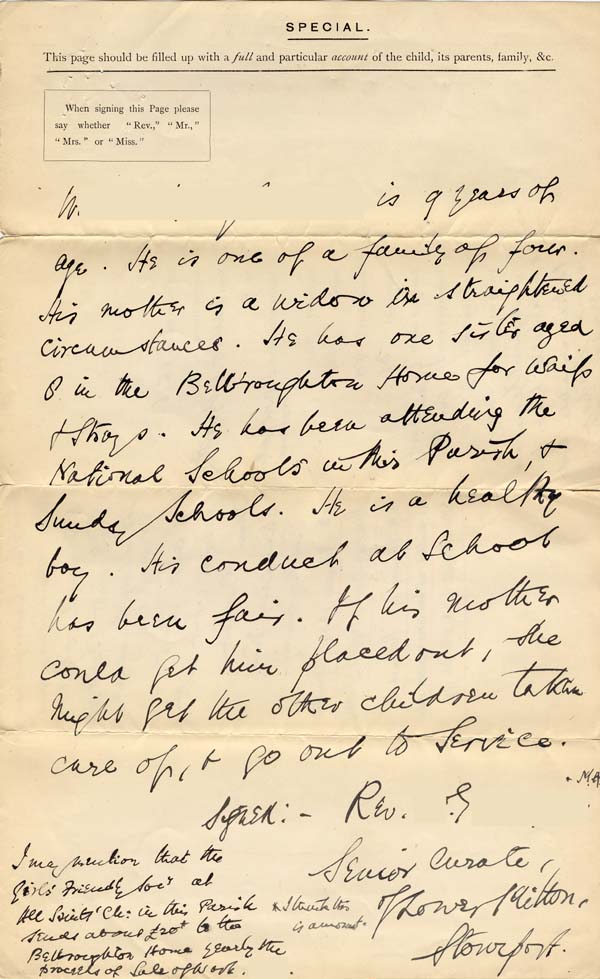 SPECIAL.
This page should be filled up with a full and particular account of the child, its parents, family, &c.
When signing this Page please
say whether "Rev.," "Mr.,"
"Mrs." or "Miss."
W. is 9 years of
age. He is one of a family of four.
His mother is a widow in straightened
circumstances. He has one sister aged
8 in the Bellbroughton Home for Waifs
& Strays. He has been attending the
National Schools in this Parish, &
Sunday Schools. He is a healthy
boy. His conduct at School
has been fair. If his mother
could get him placed out, she
might get the other children taken
care of, & go out to Service.
Signed:- Rev. G
M.A.
Senior Curate,
of Lower Mitton,
Stourport.
I may mention that the
Girls' Friendly Soc' at
All Saints' Ch: in this Parish
sends about £20* to the
Bellbroughton Home yearly the
proceeds of Sale of Work.
* I think this
is amount.